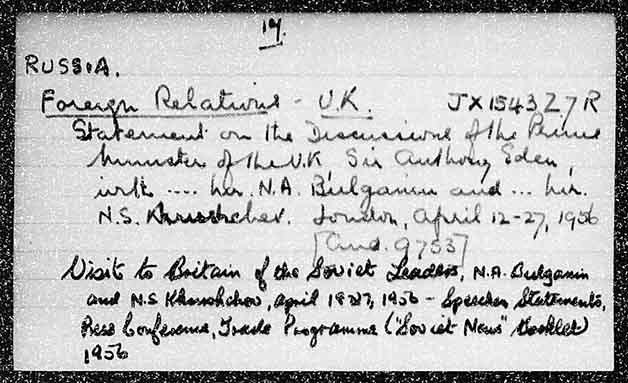 19.
RUSSIA.
Foreign Relations - U.K. JX1543Z7R
Statement on the Discussions of the Prime
Minister of the U.K. Sir Anthony Eden,
with .... Mr. N.A. Bulganin and ... Mr.
N.S. Khrushchev. London, April 12-27, 1956
[Cmd. 9753]
Visit to Britain of the Soviet Leaders, N.A. Bulganin
and N.S Khrushchov, April 1956 - Speeches, Statements,
Press Conference, Trade Programme ("Soviet News" Booklet)
1956